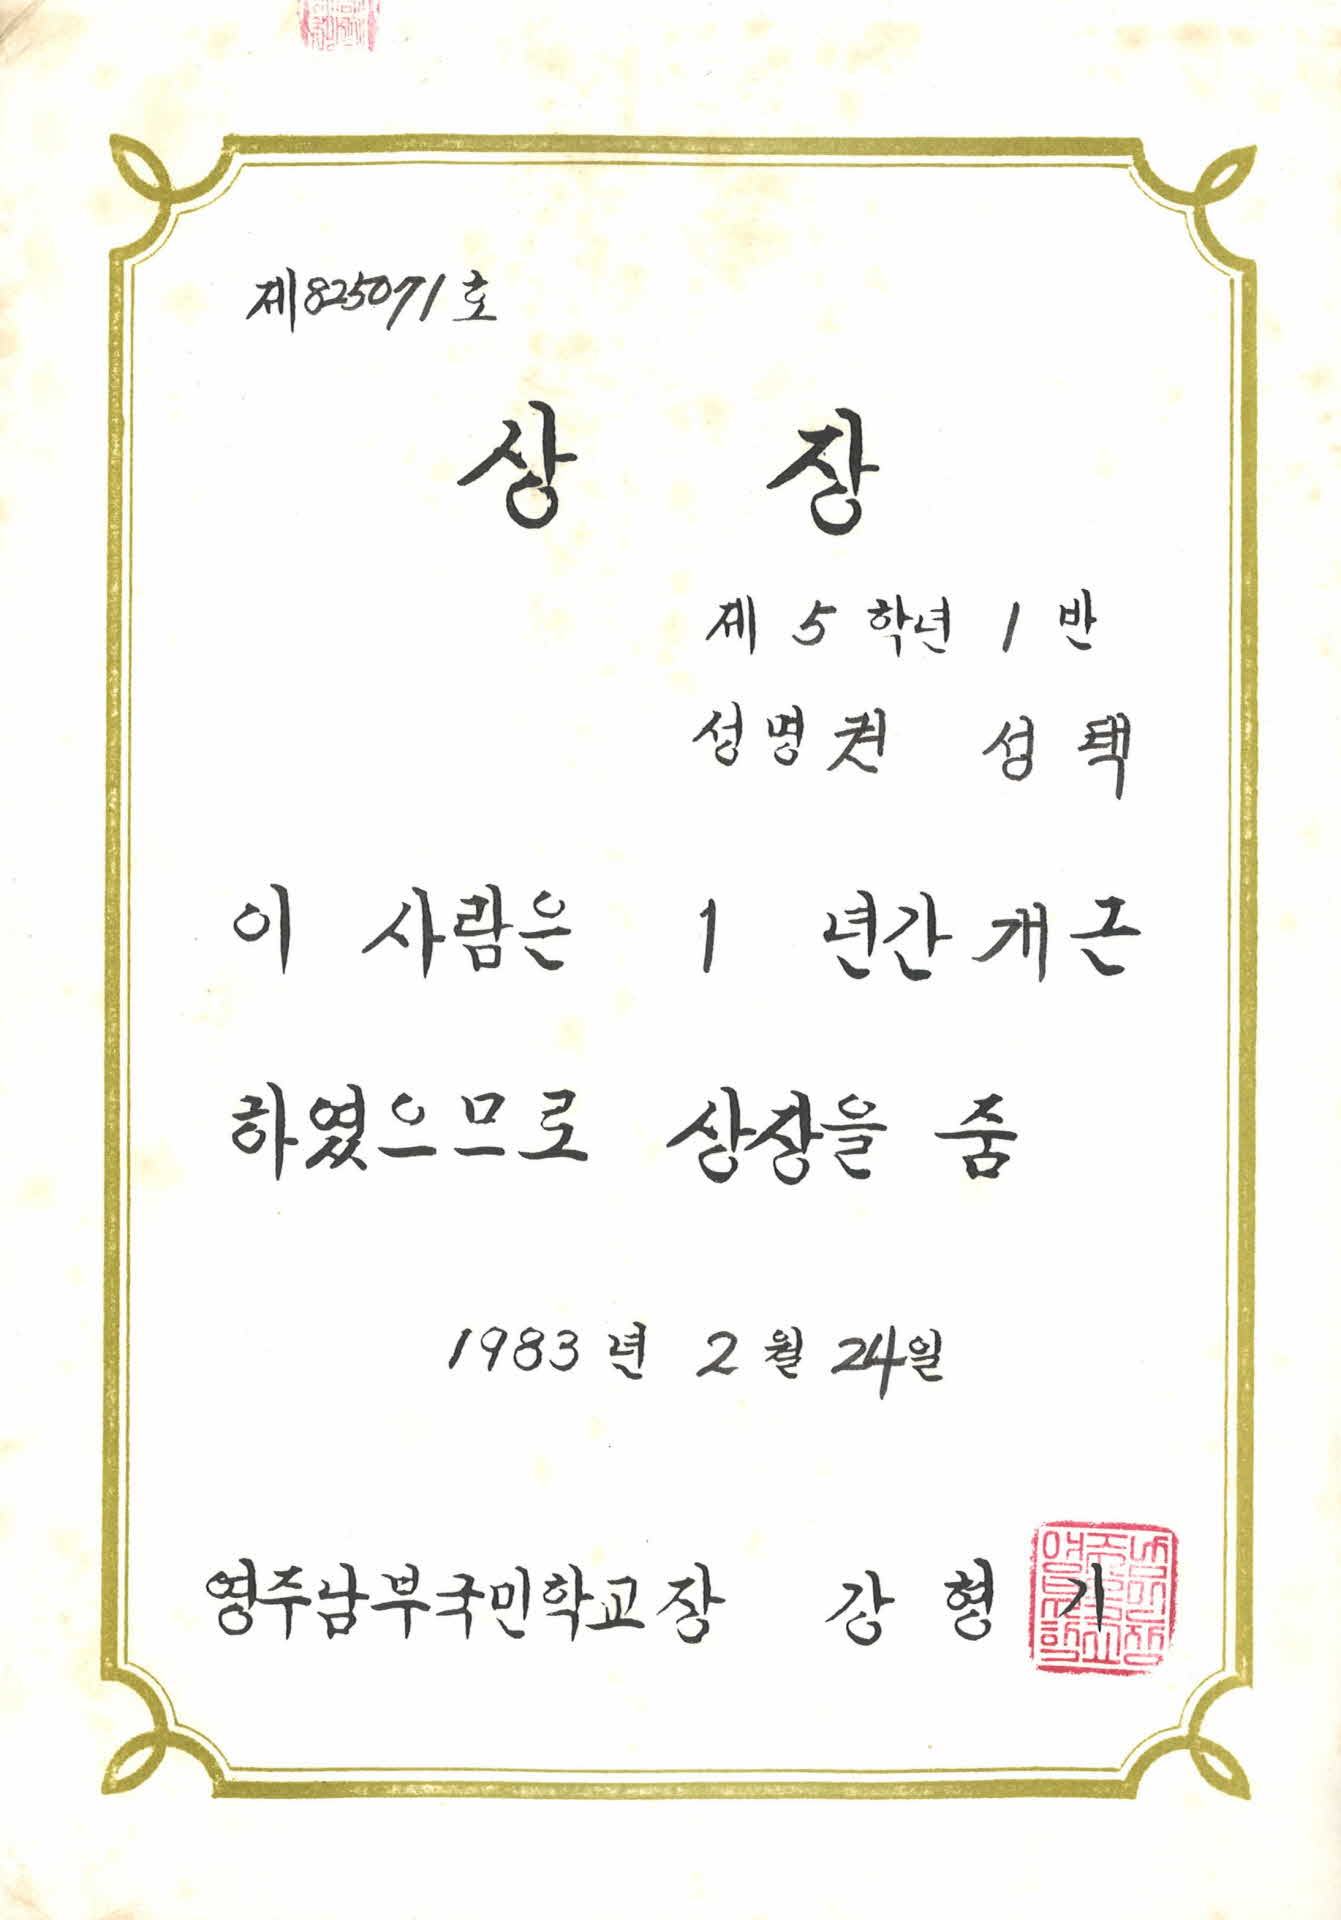 제825071호
상 장
제 5 학년 1 반
성명 권 성택
이 사람은 1 년간 개근
하였으므로 상장을 줌
1983년 2월 24일
영주남부국민학교장 강형기